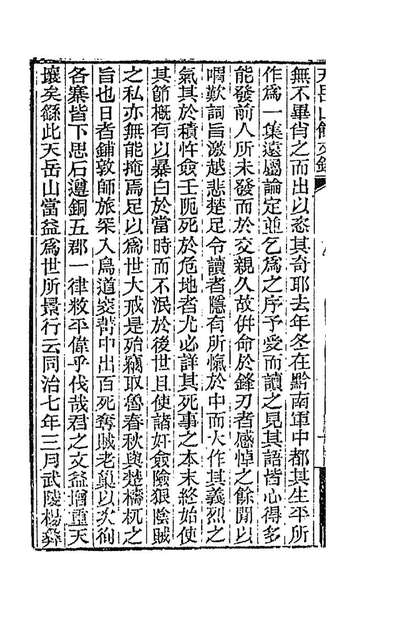 無不畢肖之而出以恣其奇耶去年冬在黔南軍中都其生平所
作爲一集遠屬論定並乞爲之序予受而讀之見其語皆心得多
能發前人所未發而於交親久故倂命於鋒刃者感悼之餘閒以
喟歎詞旨激越悲楚足令讀者隱有所愾於中而大作其義烈之
氣其於積忤僉壬阨死於危地者尤必詳其死事之本末終始使
其節槪有以暴白於當時而不泯於後世且使諸奸僉險狠陰賊
之私亦無能掩焉足以爲世大戒是殆竊取魯春秋與楚檮杌之
旨也日者鋪敦師旅罙入鳥道箐中出百死奪賊老巢以次徇
各寨皆下思石遵銅五郡一律敉平偉乎伐哉君之文益增重天
壤矣繇此天岳山當益爲世所景行云同治七年三月武陵楊彝